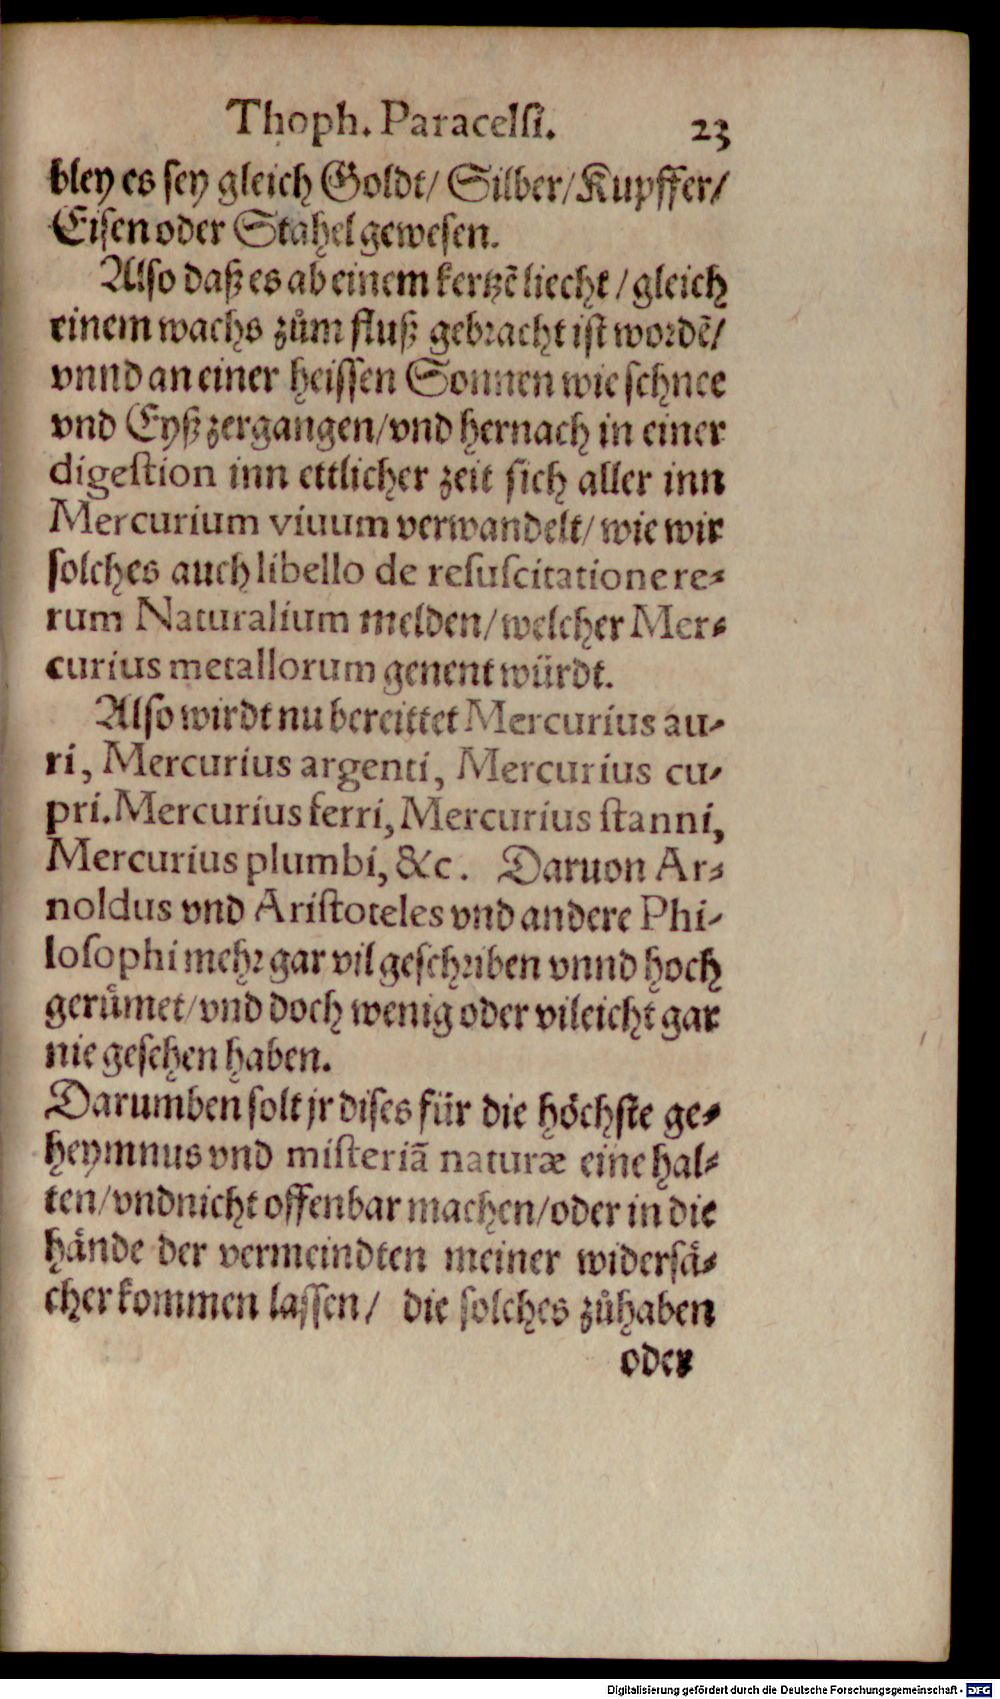 Thoph. Paracelsi. 23
bley es sey gleich Goldt/ Silber/ Kupffer/
Eisen oder Stahel gewesen.
Also daß es ab einem kertzẽ liecht/ gleich
einem wachs zům fluß gebracht ist wordẽ/
vnnd an einer heissen Sonnen wie schnee
vnd Eyß zergangen/ vnd hernach in einer
digestion inn ettlicher zeit sich aller inn
Mercurium viuum verwandelt/ wie wir
solches auch libello de resuscitatione re-
rum Naturalium melden/ welcher Mer-
curius metallorum genent würdt.
Also wirdt nu bereittet Mercurius au-
ri, Mercurius argenti, Mercurius cu-
pri. Mercurius ferri, Mercurius stanni,
Mercurius plumbi, &c. Daruon Ar-
noldus vnd Aristoteles vnd andere Phi-
losophi mehr gar vil geschriben vnnd hoch
gerůmet/ vnd doch wenig oder vileicht gar
nie gesehen haben.
Darumben solt jr dises für die höchste ge-
heymnus vnd misteriã naturæ eine hal-
ten/ vnd nicht offenbar machen/ oder in die
hände der vermeindten meiner widersä-
cher kommen lassen/ die solches zůhaben
oder
Digitalisierung gefördert durch die Deutsche Forschungsgemeinschaft - DFG